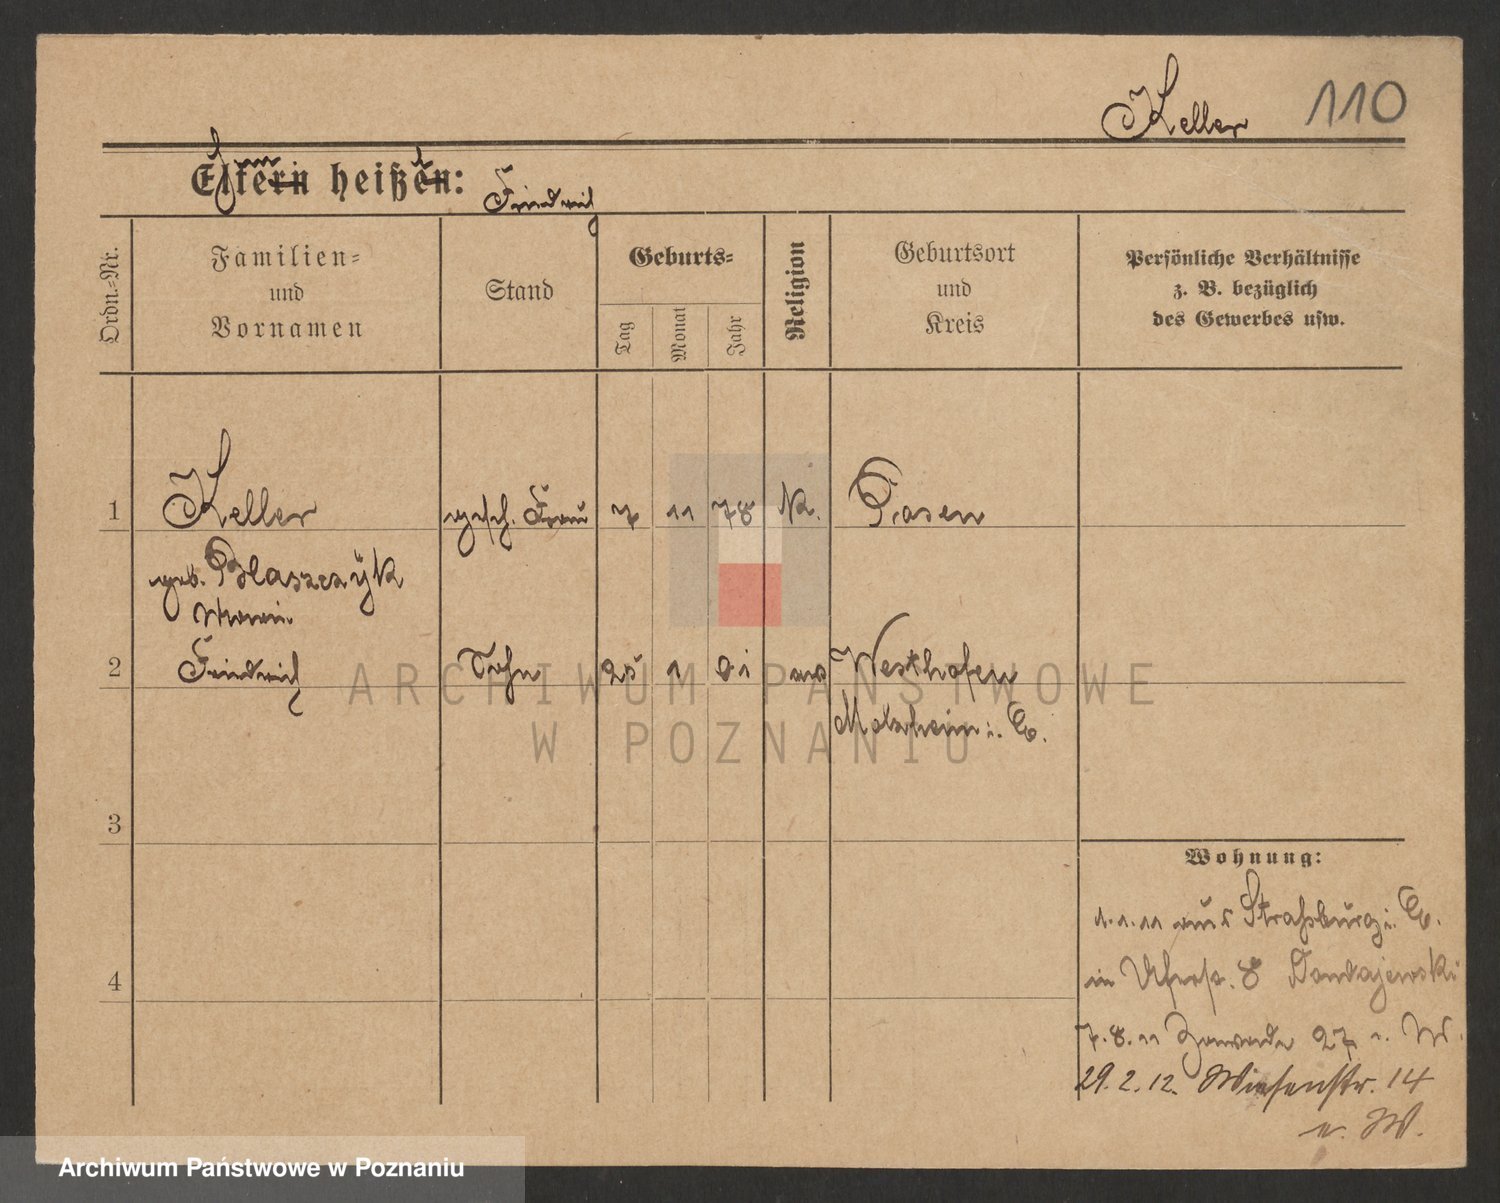 Keller 110
Eltern heißen: Friedrich
Ordn.-Nr.
Familien-
und
Vornamen
Stand
Geburts-
Tag
Monat
Jahr
Religion
Geburtsort
und
Kreis
Persönliche Verhältnisse
z. B. bezüglich
des Gewerbes usw.
1 Keller gesch. Frau 7 11 78 K. Posen
geb. Blaszczÿk
Maria
2 Friedrich Sohn 25 1 01 Westhofen
Molsheim i. E.
3
4
Wohnung:
1.1.11 aus Straßburg i. E.
in Uferstr. 8
7.8.11 Zawade 27 W.
29.2.12. Wiesenstr. 14
u. W.
ARCHIWUM PAŃSTWOWE
W POZNANIU
Archiwum Państwowe w Poznaniu